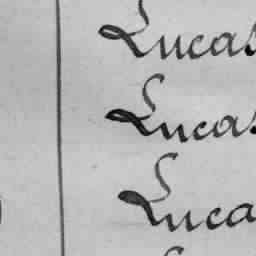 Lucas
Lucas
Luca